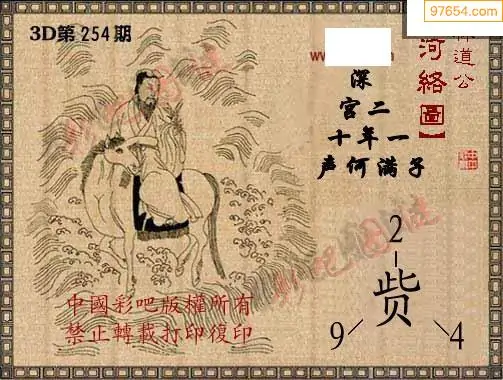 97654.com
3D第254期
www.
道公
河络圖】
深
宫二
十年一
声何满子
2
赀
9
4
中國彩吧版權所有
禁止轉載打印復印